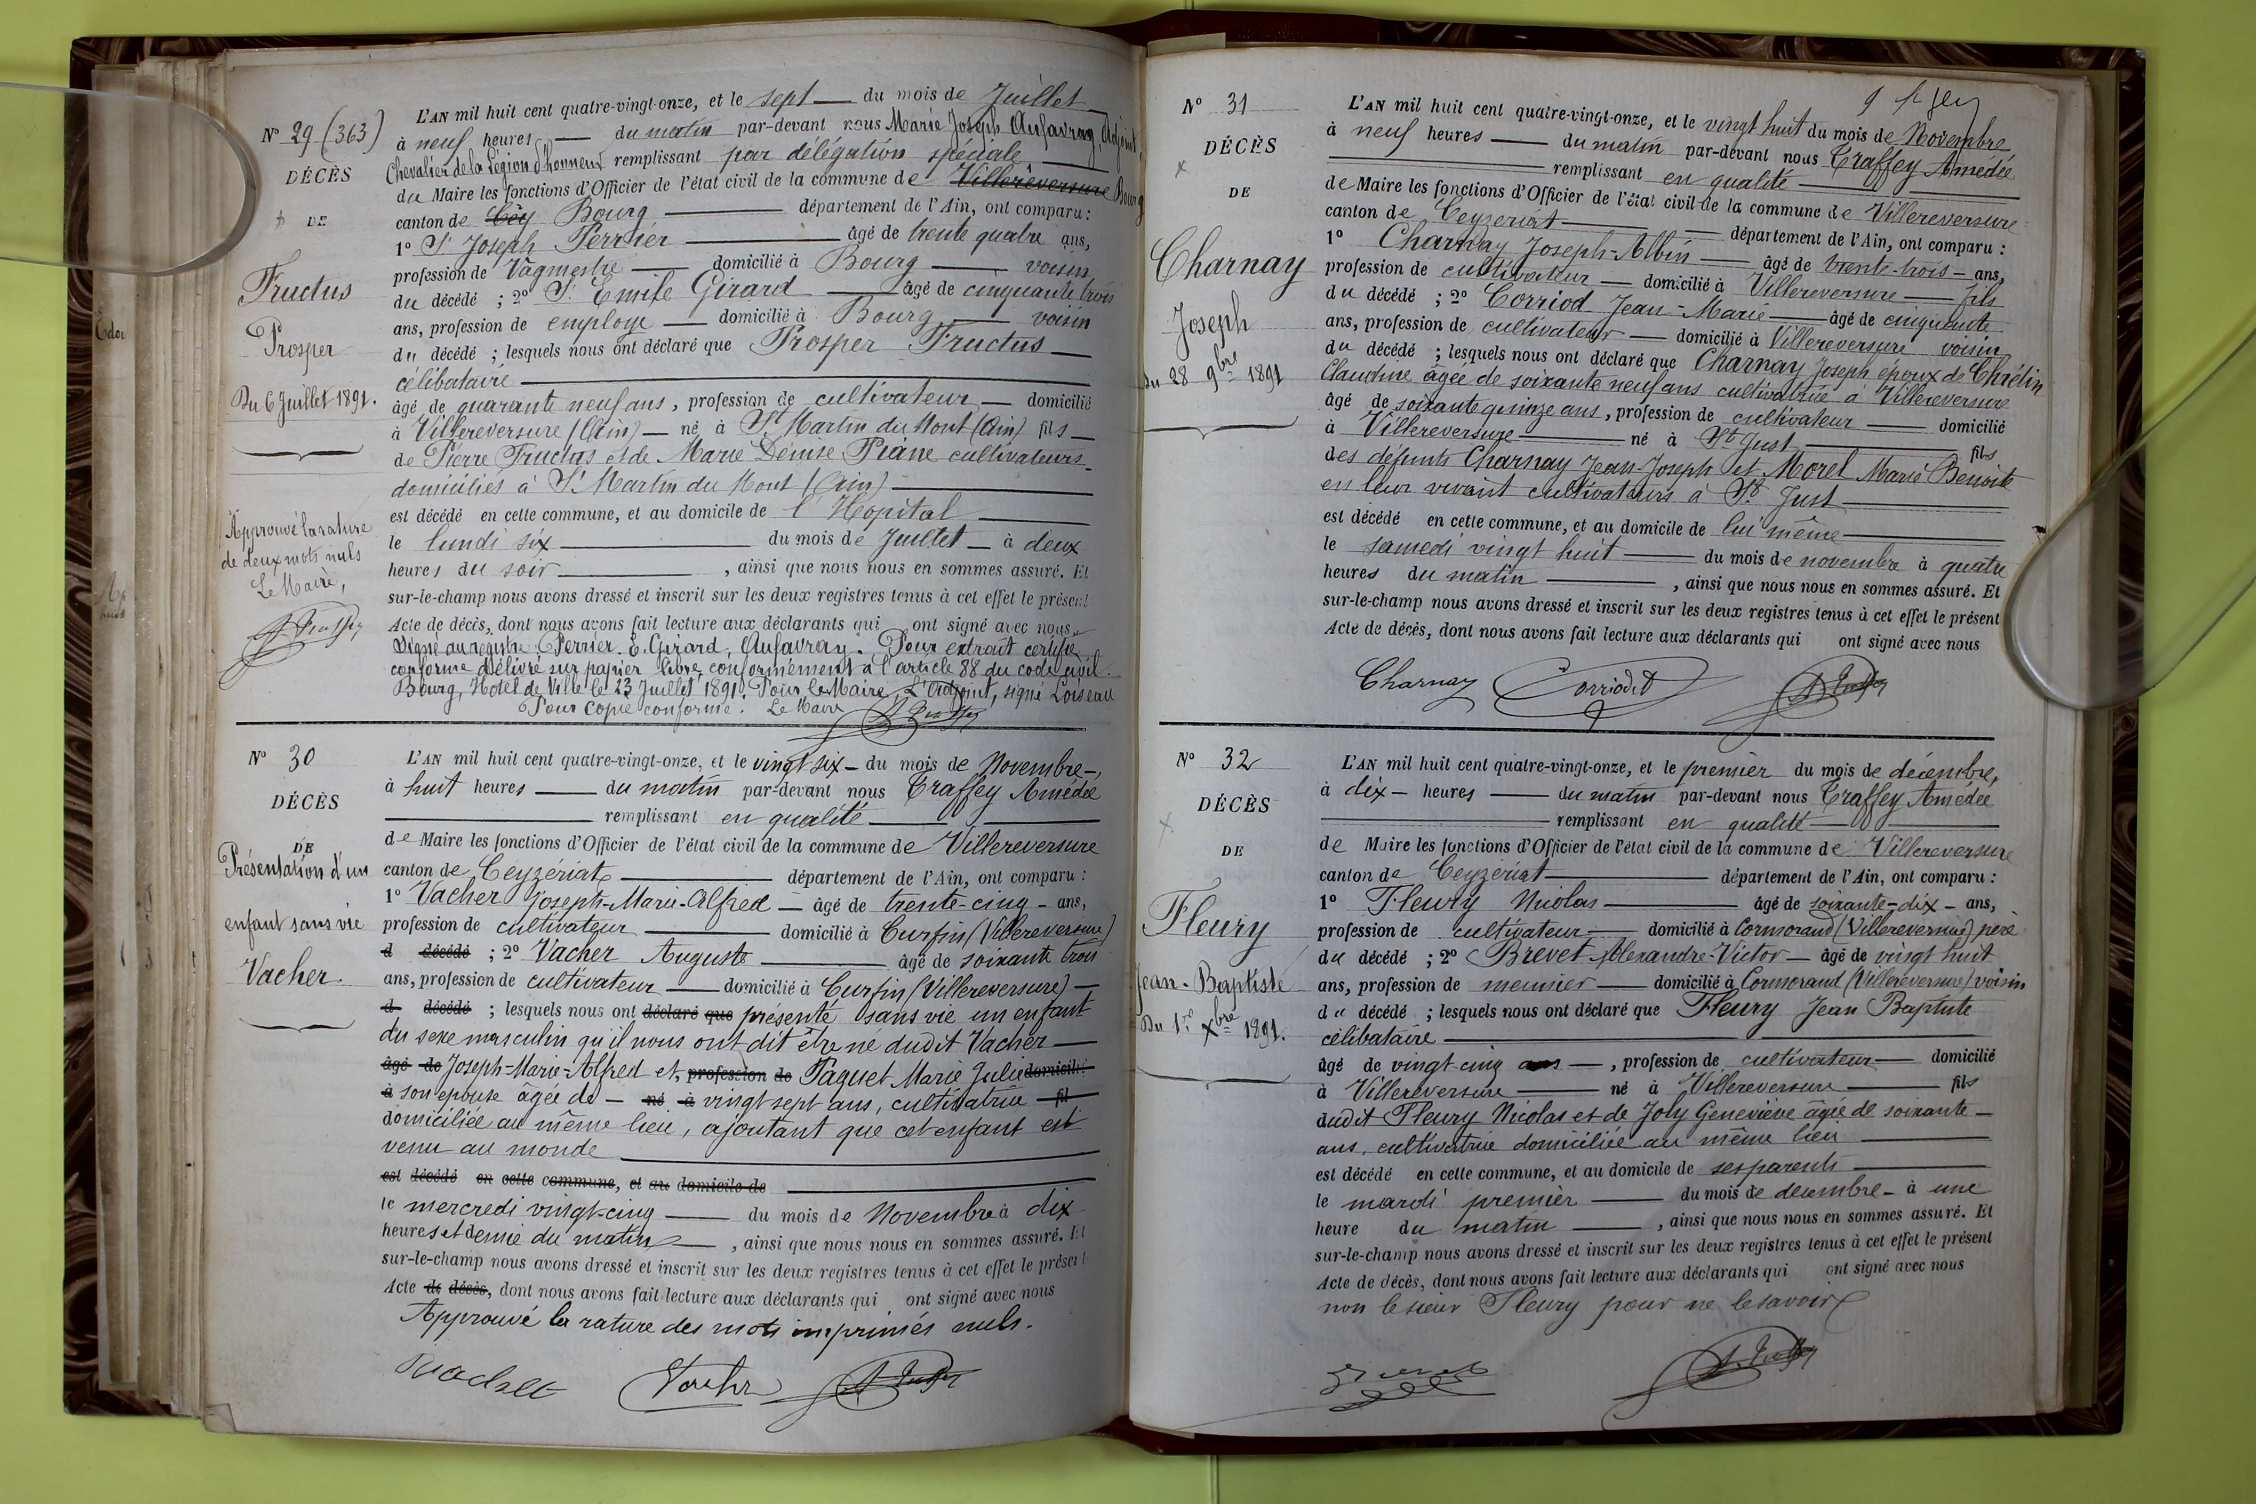 Nº 29 (363)
DÉCÈS
DE
Fructus
Prosper
Du 6 Juillet 1891.
Approuvé la rature
de deux mots nuls
Le Maire,
L'AN mil huit cent quatre-vingt-onze, et le sept du mois de Juillet
à neuf heures du matin par-devant nous Marie Joseph Aufavray, Adjoint,
Chevalier de la Légion d'honneur remplissant par délégation spéciale
du Maire les fonctions d'Officier de l'état civil de la commune de Villereversure Bourg
canton de Cey Bourg département de l'Ain, ont comparu :
1º St Joseph Perrier âgé de trente quatre ans,
profession de Vagmestre domicilié à Bourg voisin
du décédé ; 2º St Emile Girard âgé de cinquante trois
ans, profession de employé domicilié à Bourg voisin
du décédé ; lesquels nous ont déclaré que Prosper Fructus
célibataire
âgé de quarante neuf ans, profession de cultivateur domicilié
à Villereversure (Ain) né à St Martin du Mont (Ain) fils
de Pierre Fructus et de Marie Denise Piane cultivateurs
domiciliés à St Martin du Mont (Ain)
est décédé en cette commune, et au domicile de l'Hopital
le lundi six du mois de Juillet à deux
heures du soir , ainsi que nous nous en sommes assuré. Et
sur-le-champ nous avons dressé et inscrit sur les deux registres tenus à cet effet le présent
Acte de décès, dont nous avons fait lecture aux déclarants qui ont signé avec nous.
Signé au registre Perrier. E. Girard, Aufavray. Pour extrait certifié
conforme délivré sur papier libre, conformément à l'article 88 du code civil.
Bourg, Hôtel de Ville le 23 Juillet 1891. Pour le Maire, L'adjoint, signé Loiseau
Pour copie conforme. Le Maire
Nº 30
DÉCÈS
DE
Présentation d'un
enfant sans vie
Vacher.
L'AN mil huit cent quatre-vingt-onze, et le vingt six du mois de Novembre,
à huit heures du matin par-devant nous Traffey Amédée
remplissant en qualité
de Maire les fonctions d'Officier de l'état civil de la commune de Villereversure
canton de Ceyzériat département de l'Ain, ont comparu :
1º Vacher Joseph-Marie-Alfred âgé de trente-cinq ans,
profession de cultivateur domicilié à Curfin (Villereversure)
d décédé ; 2º Vacher Auguste âgé de soixante trois
ans, profession de cultivateur domicilié à Curfin (Villereversure)
d décédé ; lesquels nous ont déclaré que présenté sans vie un enfant
du sexe masculin qu'il nous ont dit être né dudit Vacher
âgé de Joseph-Marie-Alfred et, profession de Paquet Marie Julie domicilié
à son épouse âgée de né à vingt sept ans, cultivatrice fil
domiciliée au même lieu, ajoutant que cet enfant est
venu au monde
est décédé en cette commune, et au domicile de
le mercredi vingt-cinq du mois de Novembre à dix
heures et demie du matin , ainsi que nous nous en sommes assuré. Et
sur-le-champ nous avons dressé et inscrit sur les deux registres tenus à cet effet le présent
Acte de décès, dont nous avons fait lecture aux déclarants qui ont signé avec nous
Approuvé la rature des mots imprimés nuls.
Nº 31
DÉCÈS
DE
Charnay
Joseph
du 28 9bre 1891
L'AN mil huit cent quatre-vingt-onze, et le vingt huit du mois de Novembre
à neuf heures du matin par-devant nous Traffey Amédée
remplissant en qualité
de Maire les fonctions d'Officier de l'état civil de la commune de Villereversure
canton de Ceyzériat département de l'Ain, ont comparu :
1º Charnay Joseph-Albin âgé de trente-trois ans,
profession de cultivateur domicilié à Villereversure fils
du décédé ; 2º Corriod Jean-Marie âgé de cinquante
ans, profession de cultivateur domicilié à Villereversure voisin
du décédé ; lesquels nous ont déclaré que Charnay Joseph époux de Chrétin
Claudine âgée de soixante neuf ans cultivatrice à Villereversure
âgé de soixante quinze ans, profession de cultivateur domicilié
à Villereversure né à St Just fils
des défunts Charnay Jean-Joseph et Morel Marie Benoite
en leur vivant cultivateurs à St Just
est décédé en cette commune, et au domicile de lui même
le samedi vingt huit du mois de novembre à quatre
heures du matin , ainsi que nous nous en sommes assuré. Et
sur-le-champ nous avons dressé et inscrit sur les deux registres tenus à cet effet le présent
Acte de décès, dont nous avons fait lecture aux déclarants qui ont signé avec nous
Charnay Corriod
Nº 32
DÉCÈS
DE
Fleury
Jean-Baptiste
Du 1er Xbre 1891.
L'AN mil huit cent quatre-vingt-onze, et le premier du mois de décembre,
à dix heures du matin par-devant nous Traffey Amédée
remplissant en qualité
de Maire les fonctions d'Officier de l'état civil de la commune de Villereversure
canton de Ceyzériat département de l'Ain, ont comparu :
1º Fleury Nicolas âgé de soixante-dix ans,
profession de cultivateur domicilié à Cormorand (Villereversure) père
du décédé ; 2º Brevet Alexandre-Victor âgé de vingt huit
ans, profession de meunier domicilié à Cormorand (Villereversure) voisin
du décédé ; lesquels nous ont déclaré que Fleury Jean Baptiste
célibataire
âgé de vingt cinq ans , profession de cultivateur domicilié
à Villereversure né à Villereversure fils
dudit Fleury Nicolas et de Joly Geneviève âgée de soixante
ans, cultivatrice domiciliée au même lieu
est décédé en cette commune, et au domicile de ses parents
le mardi premier du mois de décembre à une
heure du matin , ainsi que nous nous en sommes assuré. Et
sur-le-champ nous avons dressé et inscrit sur les deux registres tenus à cet effet le présent
Acte de décès, dont nous avons fait lecture aux déclarants qui ont signé avec nous
non le sieur Fleury pour ne le savoir